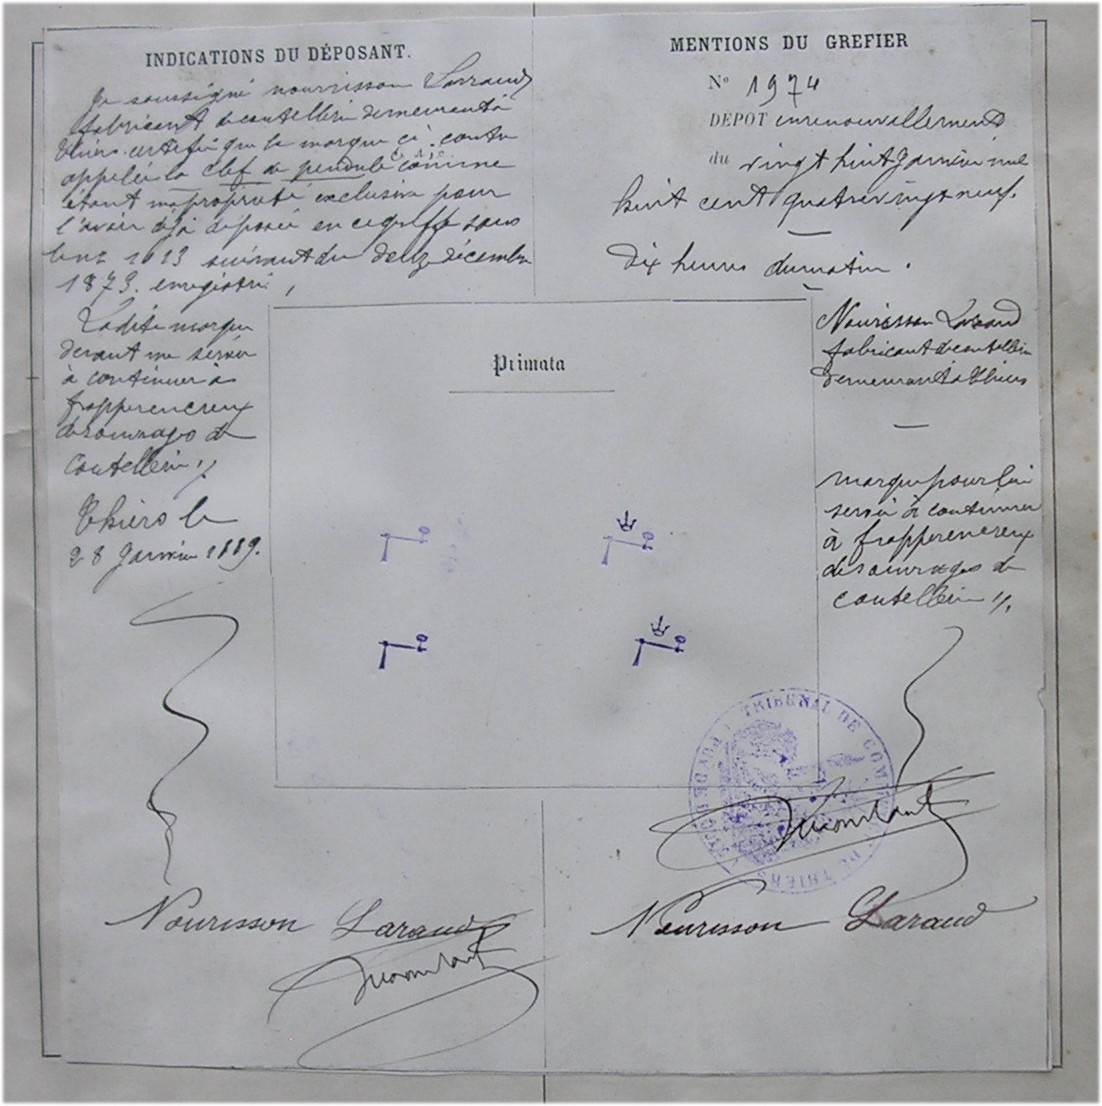 INDICATIONS DU DÉPOSANT.
Je soussigné nourrisson Larraud
fabricant de coutellerie demeurant à
thiers certifie que la marque ci contre
appelée la clef de pendule comme
étant ma propriété exclusive pour
l'avoir déjà déposée en ce greffe sous
le no 1613 suivant du decembre
1873. enregistré,
Ladite marque
devant me servir
à continuer à
frapper en creux
des ouvrages de
coutellerie //
Thiers le
28 Janvier 1889.
MENTIONS DU GREFIER
No 1974
DÉPOT en renouvellement
du vingt huit Janvier mil
huit cent quatre vingt neuf.
Dix heures du matin.
Nourisson Laraud
fabricant de coutellerie
demeurant à Thiers
marque pour lui
servir à continuer
à frapper en creux
des ouvrages de
coutellerie //.
Primata
TRIBUNAL DE COMMERCE DE THIERS
PUY DE DOME
Nourisson Laraud
Nourisson Laraud